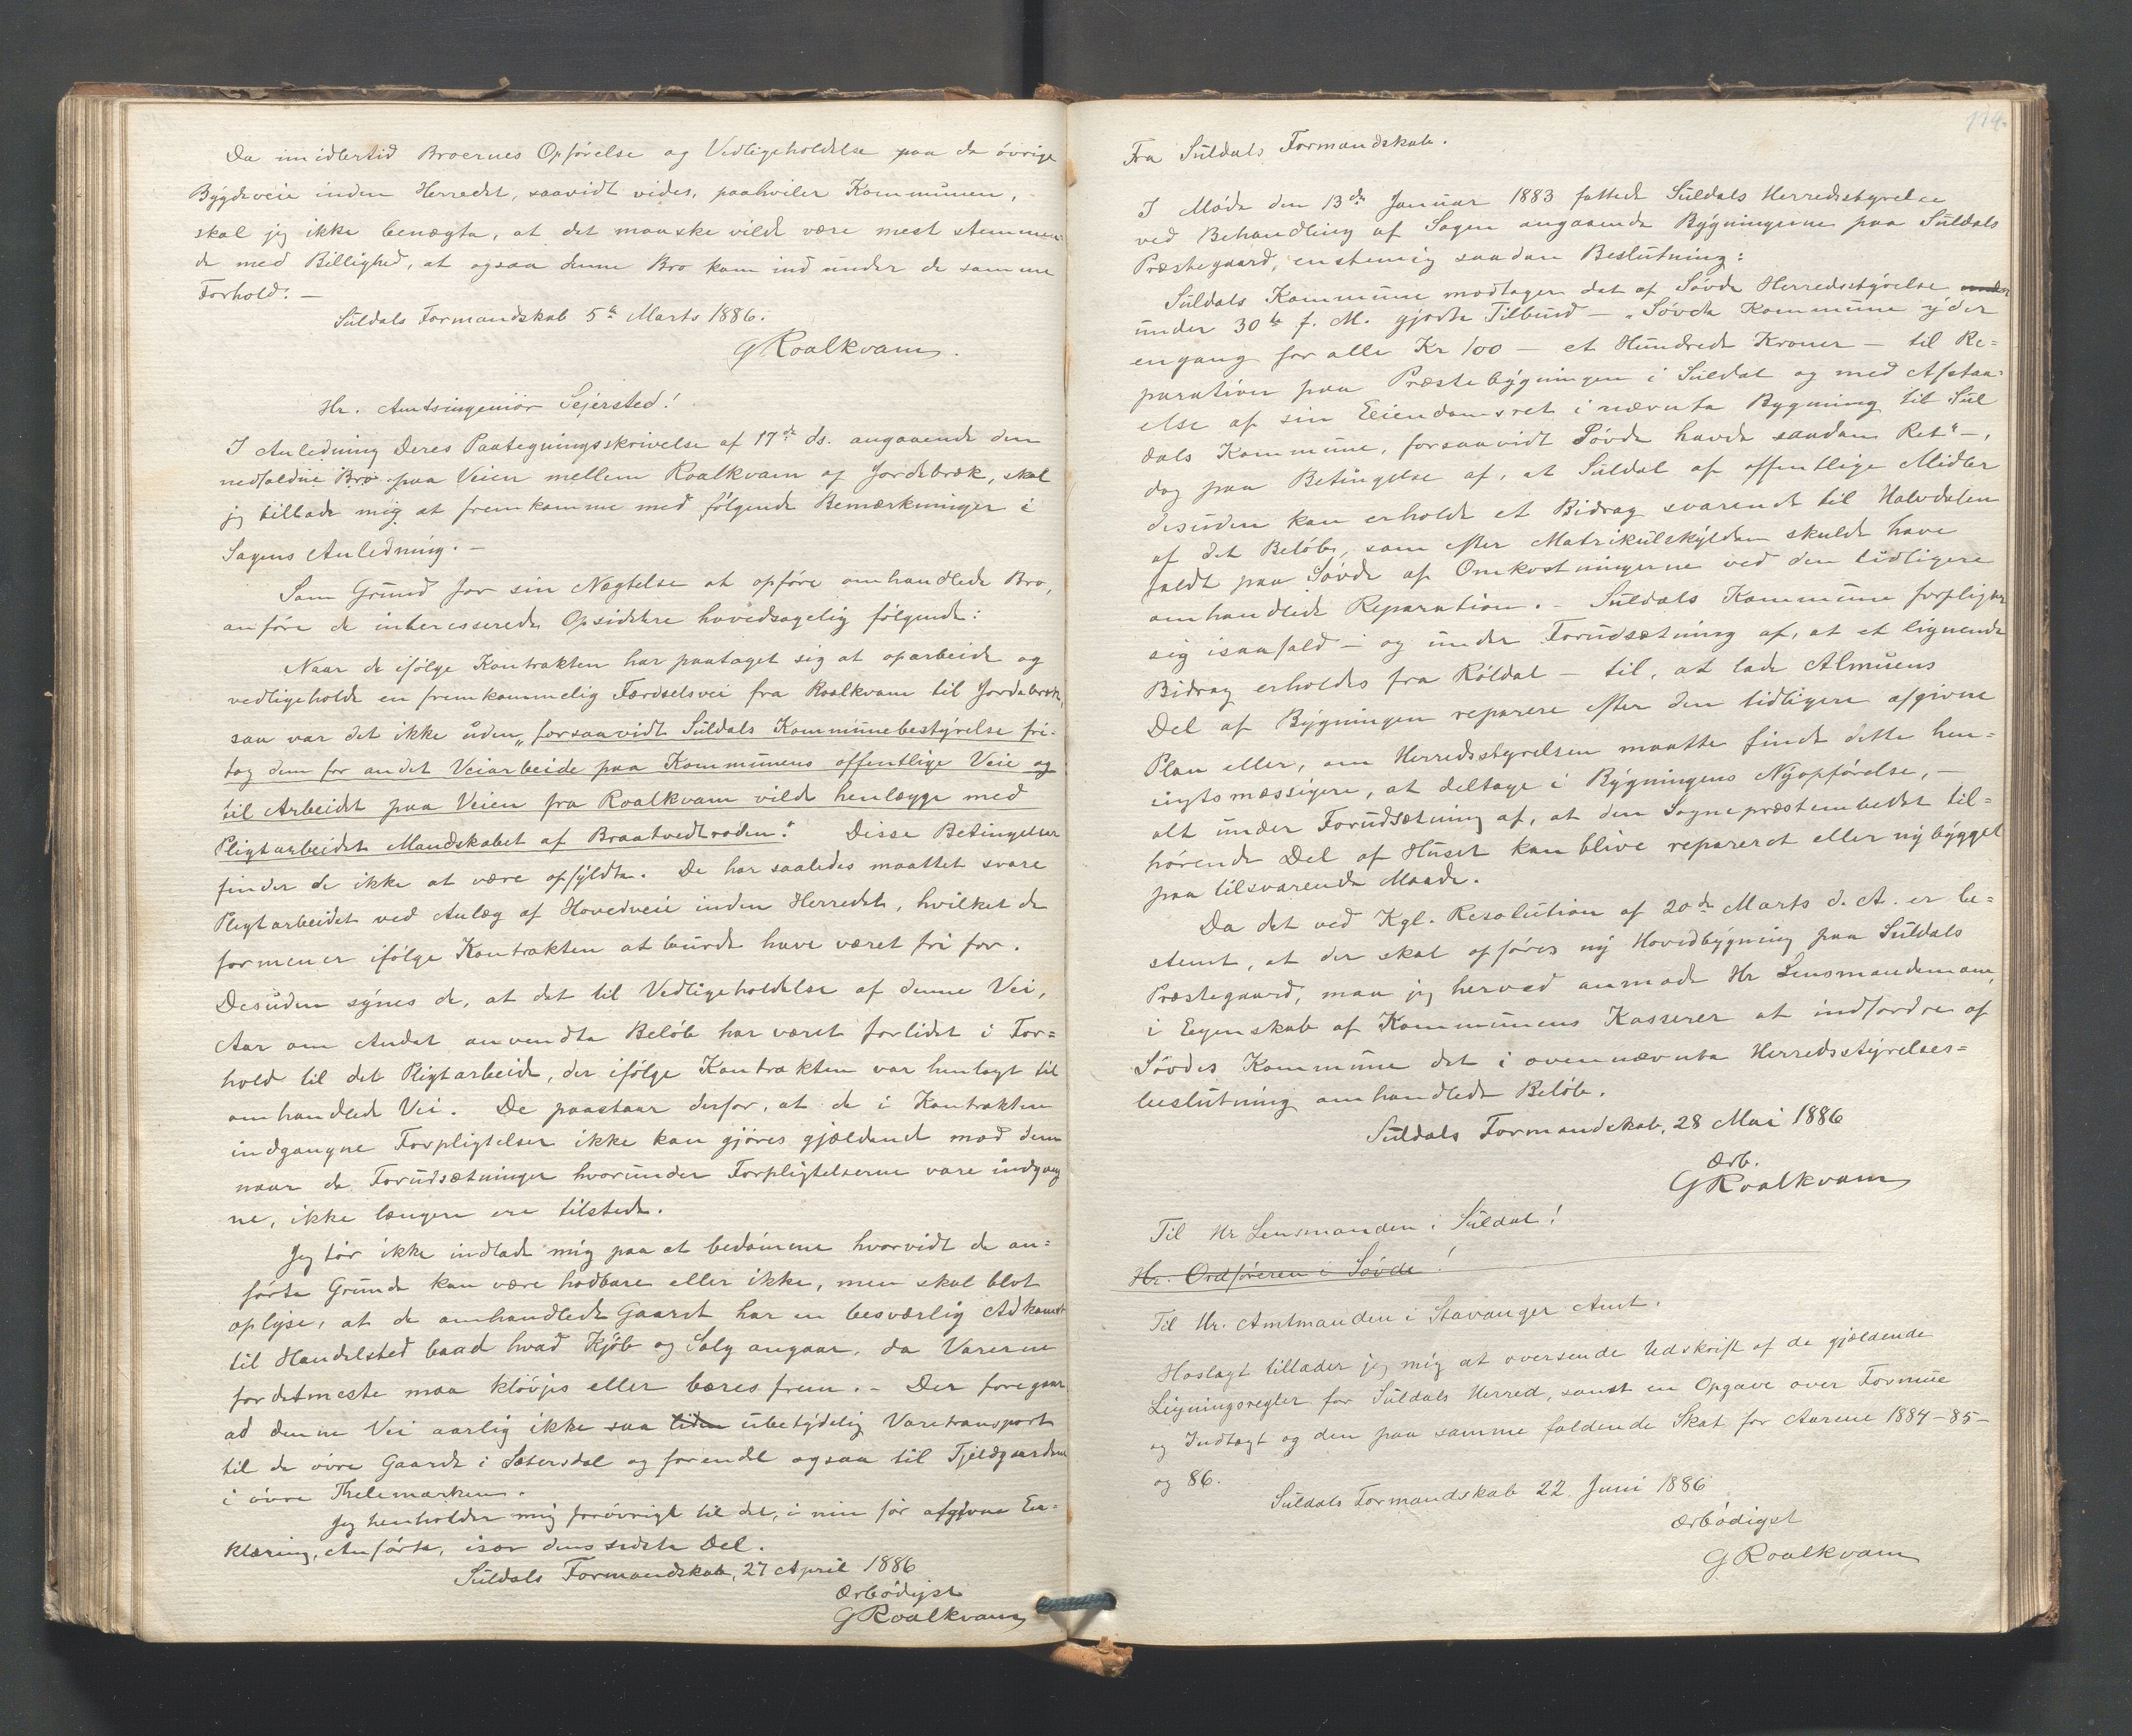 Da imidlertid Broernes Opførelse og Vedligeholdelse paa de øvrige
Bygdeveie inden Herredet, saavidt vides, paahviler Kommunen,
skal jeg ikke benægte, at det maaske vilde være mest stemmen-
de med Billighed, at ogsaa denne Bro kom ind under de samme
Forhold. —
Suldals Formandskab 5te Marts 1886.
G Roalkvam.
Hr. Amtsingeniør Sejersted!
I Anledning Deres Paategningsskrivelse af 17de ds. angaaende den
nedfaldne Bro paa Veien mellem Roalkvam og Jordebræk, skal
jeg tillade mig at fremkomme med følgende Bemærkninger i
Sagens Anledning. —
Som Grund for sin Nægtelse at opføre omhandlede Bro,
anføre de interesserede Opsiddere hovedsagelig følgende:
Naar de ifølge Kontrakten har paataget sig at oparbeide og
vedligeholde en fremkommelig Færdselsvei fra Roalkvam til Jordebræk,
saa var det ikke uden „forsaavidt Suldals Kommunebestyrelse fri-
tog dem for andet Veiarbeide paa Kommunens offentlige Veie og
til Arbeidet paa Veien fra Roalkvam vilde henlægge med
Pligtarbeidet Mandskabet af Braatvedtroden." Disse Betingelser
finder de ikke at være opfyldte. De har saaledes maattet svare
Pligtarbeidet ved Anlæg af Hovedveie inden Herredet, hvilket de
formener ifølge Kontrakten at burde have været fri for.
Desuden synes de, at det til Vedligeholdelse af denne Vei,
Aar om Andet anvendte Beløb har været forlidet i For=
hold til det Pligtarbeide, der ifølge Kontrakten var henlagt til
omhandlede Vei. De paastaar derfor, at de i Kontrakten
indgangne Forpligtelser ikke kan gjøres gjældende mod dem
naar de Forudsætninger hvorunder Forpligtelserne vare indgang
ne, ikke længere ere tilstede.
Jeg tør ikke indlade mig paa at bedømme hvorvidt de an=
førte Grunde kan være holdbare eller ikke, men skal blot
oplyse, at de omhandlede Gaarde har en besværlig Adkomst
til Handelsted baade hvad Kjøb og Salg angaar, da Varerne
fordetmeste maa kløvjes eller bæres frem. – Der foregaar
ad denne Vei aarlig ikke saa liden ubetydelig Varetransport
til de øvre Gaarde i Sætersdal og forendel ogsaa til Fjeldgaardene
i øvre Thelemarken.
Jeg henholder mig forøvrigt til det, i min før afgivne Er-
klæring, Anførte, især dens sidste Del.
Suldals Formandskab, 27 April 1886
Ærbødigst
G Roalkvam
114.
Fra Suldals Formandskab.
I Møde den 13de Januar 1883 fattede Suldals Herredsstyrelse
ved Behandling af Sagen angaaende Bygningerne paa Suldals
Præstegaard, enstemig saadan Beslutning:
Suldals Kommune modtager det af Søvde Herredsstyrelse under
under 30te f. M. gjorte Tilbud — „Søvde Kommune yder
engang for alle Kr 100 — et Hundrede Kroner — til Re=
paration paa Præstebygningen i Suldal og med Afstaa-
else af sin Eiendomsret i nævnte Bygning til Sul
dals Kommune, forsaavidt Søvde havde saadan Ret" —,
dog paa Betingelse af, at Suldal af offentlige Midler
desuden kan erholde et Bidrag svarende til Halvdelen
af det Beløb, som efter Matrikulskylden skulde have
faldt paa Søvde af Omkostningerne ved den tidligere
omhandlede Reparation. — Suldals Kommune forpligter
sig isaafald — og under Forudsætning af, at et lignende
Bidrag erholdes fra Røldal — til, at lade Almuens
Del af Bygningen reparere efter den tidligere afgivne
Plan eller, om Herredsstyrelsen maatte finde dette hen=
sigtsmæssigere, at deltage i Bygningens Nyopførelse, —
alt under Forudsætning af, at den Sognepræstembedet til=
hørende Del af Huset kan blive repareret eller nybygget
paa tilsvarende Maade.
Da det ved Kgl. Resolution af 20de Marts d. A. er be=
stemt, at der skal opføres ny Hovedbygning paa Suldals
Præstegaard, maa jeg herved anmode Hr Lensmanden om,
i Egenskab af Kommunens Kasserer at indfordre af
Søvdes Kommune det i ovennævnte Herredsstyrelses=
beslutning omhandlede Beløb.
Suldals Formandskab, 28 Mai 1886
Ærb.
G Roalkvam
Til Hr Lensmanden i Suldal!
Hr. Ordføreren i Søvde!
Til Hr. Amtmanden i Stavanger Amt.
Hoslagt tillader jeg mig at oversende Udskrift af de gjældende
Ligningsregler for Suldals Herred, samt en Opgave over Formue
og Indtægt og den paa samme faldende Skat for Aarene 1884–85–
og 86.
Suldals Formandskab 22 Juni 1886
Ærbødigst
G Roalkvam